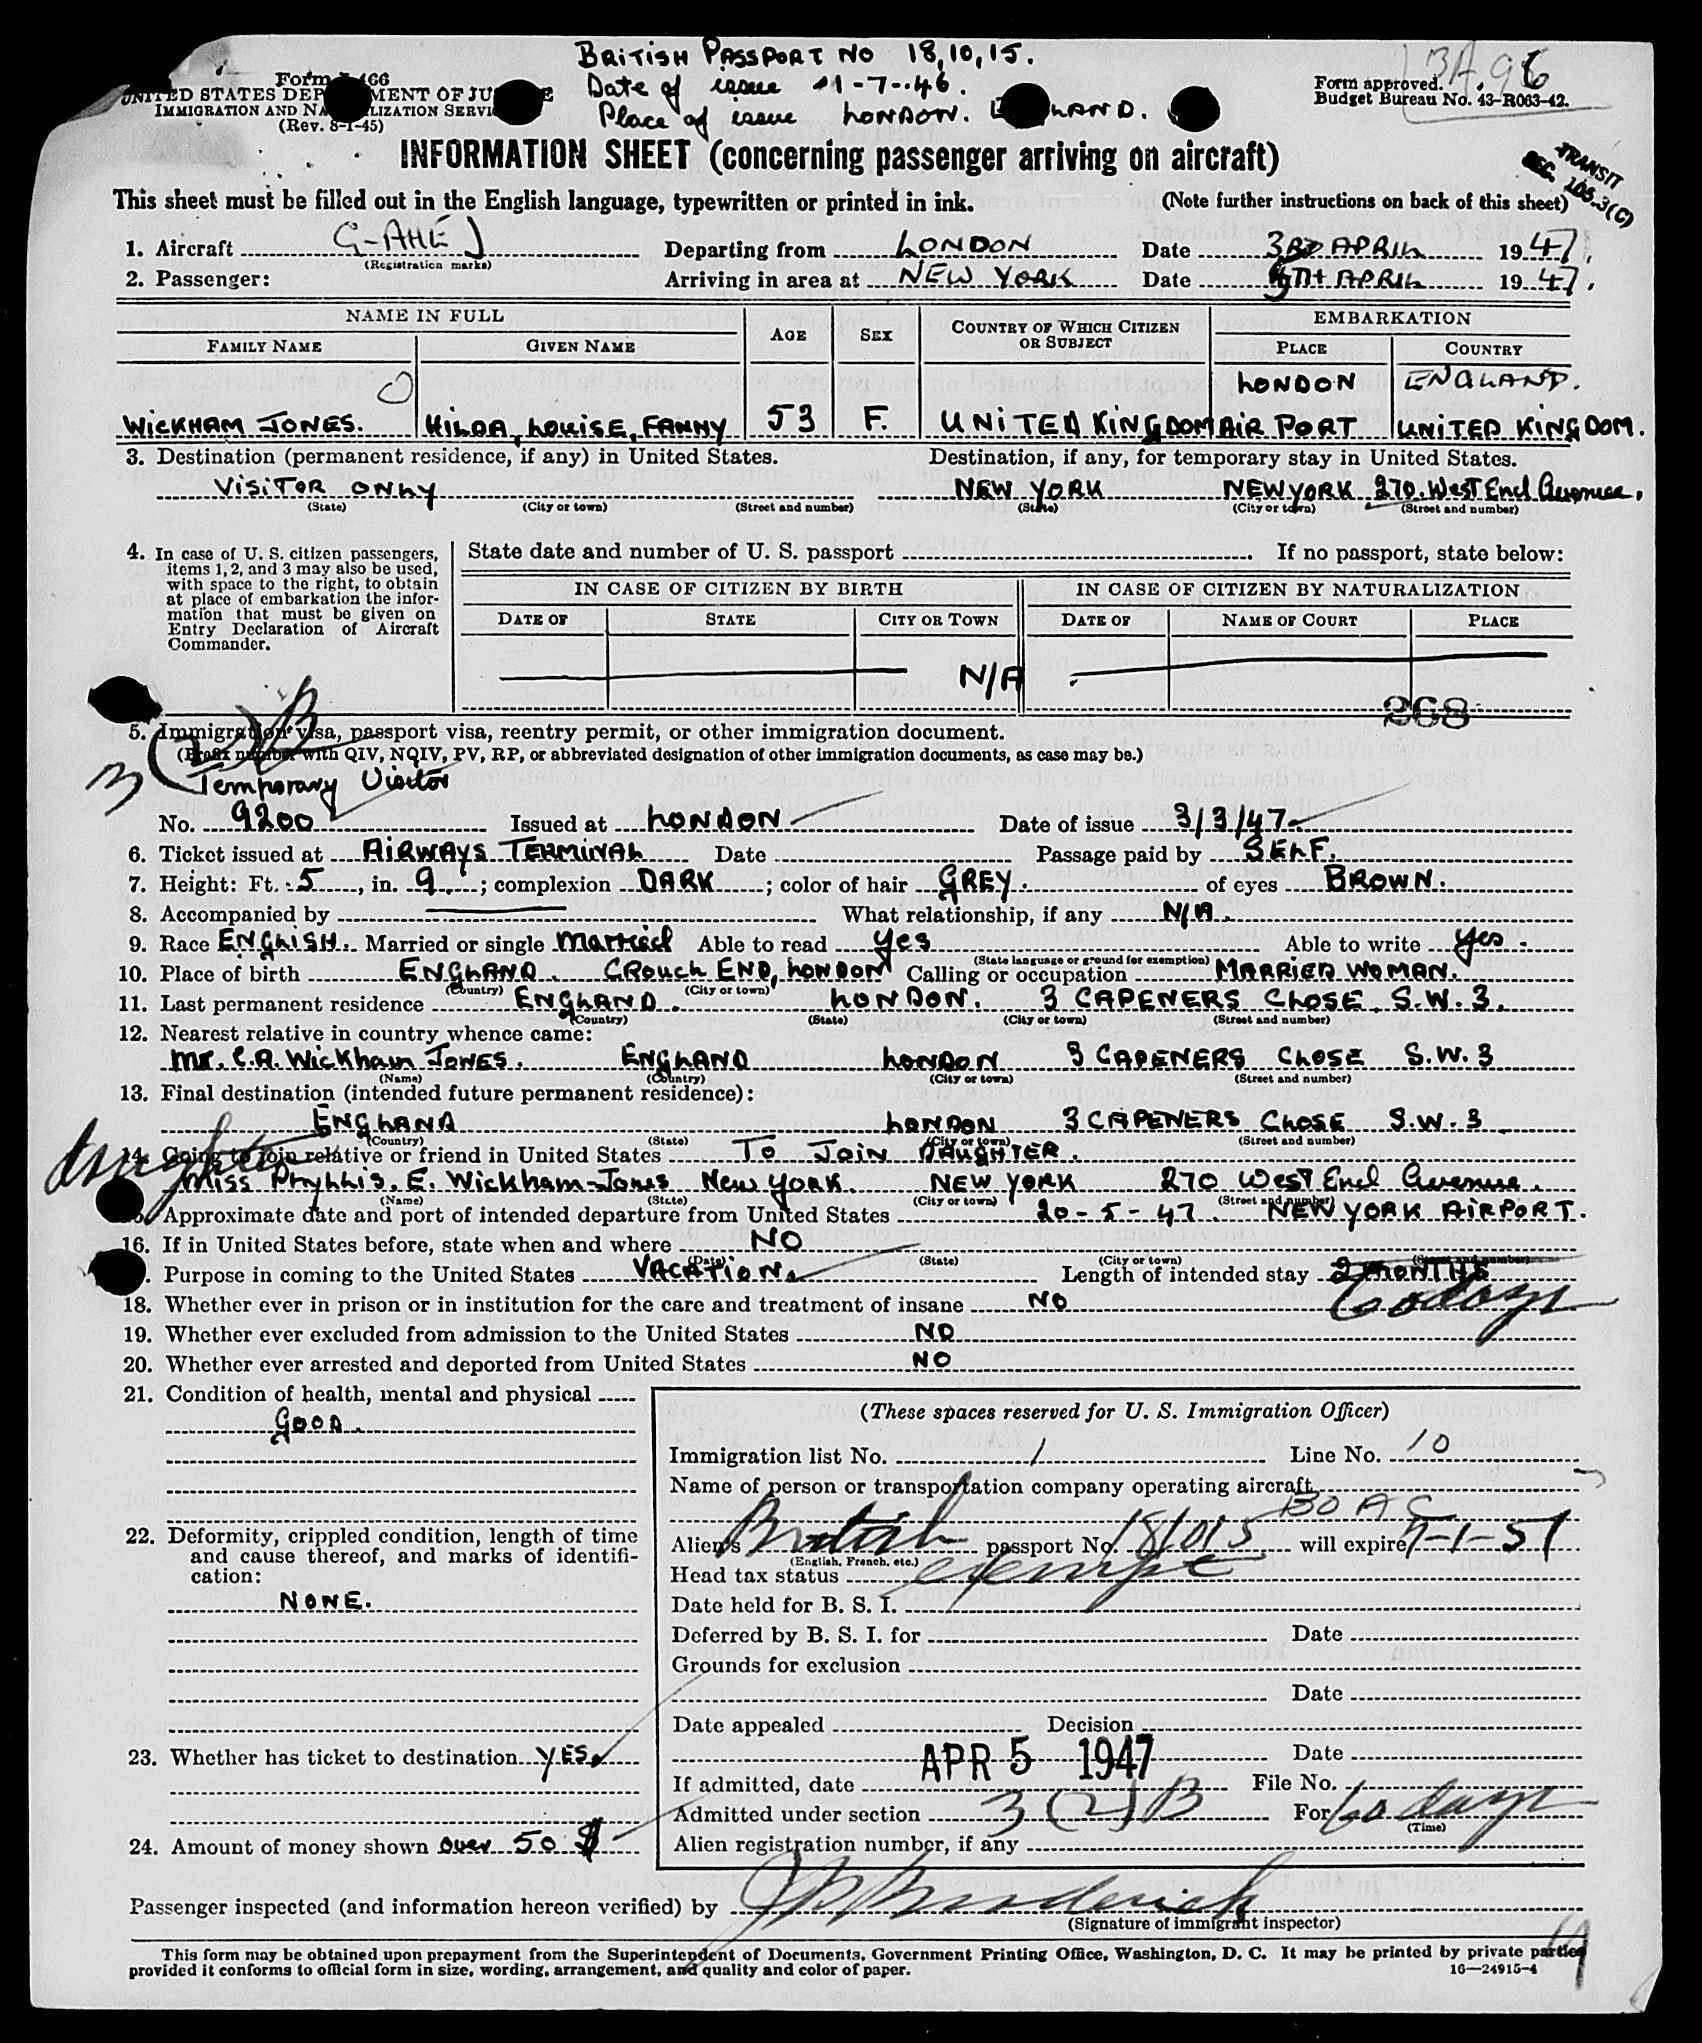 BRITISH PASSPORT NO 18,10,15.
Date of issue 1-7-46.
Place of issue LONDON. ENGLAND.
BA 96
Form I-466
UNITED STATES DEPARTMENT OF JUSTICE
IMMIGRATION AND NATURALIZATION SERVICE
(Rev. 8-1-45)
Form approved.
Budget Bureau No. 43-R063-42.
INFORMATION SHEET (concerning passenger arriving on aircraft)
TRANSIT
SEC. 105.3(C)
This sheet must be filled out in the English language, typewritten or printed in ink. (Note further instructions on back of this sheet)
1. Aircraft G-AHEJ Departing from LONDON Date 3RD APRIL 1947.
(Registration marks)
2. Passenger: Arriving in area at NEW YORK Date 5TH APRIL 1947.
NAME IN FULL AGE SEX COUNTRY OF WHICH CITIZEN OR SUBJECT EMBARKATION
FAMILY NAME GIVEN NAME PLACE COUNTRY
LONDON ENGLAND.
WICKHAM JONES. HILDA, LOUISE, FANNY 53 F. UNITED KINGDOM AIR PORT UNITED KINGDOM.
3. Destination (permanent residence, if any) in United States. Destination, if any, for temporary stay in United States.
VISITOR ONLY NEW YORK NEW YORK 270. West End Avenue.
(State) (City or town) (Street and number) (State) (City or town) (Street and number)
4. In case of U. S. citizen passengers, items 1, 2, and 3 may also be used, with space to the right, to obtain at place of embarkation the information that must be given on Entry Declaration of Aircraft Commander.
State date and number of U. S. passport If no passport, state below:
IN CASE OF CITIZEN BY BIRTH IN CASE OF CITIZEN BY NATURALIZATION
DATE OF STATE CITY OR TOWN DATE OF NAME OF COURT PLACE
N/A
268
5. Immigration visa, passport visa, reentry permit, or other immigration document.
(Prefix number with QIV, NQIV, PV, RP, or abbreviated designation of other immigration documents, as case may be.)
3(2)B
Temporary Visitor
No. 9200 Issued at LONDON Date of issue 3/3/47
6. Ticket issued at AIRWAYS TERMINAL Date Passage paid by SELF.
7. Height: Ft. 5, in. 9; complexion DARK; color of hair GREY. of eyes BROWN.
8. Accompanied by What relationship, if any N/A.
9. Race ENGLISH. Married or single Married Able to read Yes Able to write Yes.
(State language or ground for exemption)
10. Place of birth ENGLAND. CROUCH END, LONDON Calling or occupation MARRIED WOMAN.
(Country) (City or town)
11. Last permanent residence ENGLAND. LONDON. 3 CAPENERS CLOSE. S.W.3.
(Country) (State) (City or town) (Street and number)
12. Nearest relative in country whence came:
Mr. C.A. Wickham JONES. ENGLAND LONDON 3 CAPENERS CLOSE S.W.3
(Name) (Country) (City or town) (Street and number)
13. Final destination (intended future permanent residence):
ENGLAND LONDON 3 CAPENERS CLOSE S.W.3
(Country) (State) (City or town) (Street and number)
daughter
14. Going to join relative or friend in United States TO JOIN DAUGHTER.
Miss Phyllis. E. Wickham-Jones New York. NEW YORK 270 West End Avenue.
(Name) (State) (City or town) (Street and number)
15. Approximate date and port of intended departure from United States 20-5-47. NEW YORK AIRPORT.
16. If in United States before, state when and where NO
(Date) (State) (City or town) (Street and number)
Purpose in coming to the United States VACATION. Length of intended stay 2 MONTHS
60 days
18. Whether ever in prison or in institution for the care and treatment of insane NO
19. Whether ever excluded from admission to the United States NO
20. Whether ever arrested and deported from United States NO
21. Condition of health, mental and physical
GOOD.
22. Deformity, crippled condition, length of time and cause thereof, and marks of identification:
NONE.
23. Whether has ticket to destination YES
24. Amount of money shown over 50 $
(These spaces reserved for U. S. Immigration Officer)
Immigration list No. 1 Line No. 10
Name of person or transportation company operating aircraft
BOAC
Alien's British passport No. 181015 will expire 7-1-51
(English, French, etc.)
Head tax status exempt
Date held for B. S. I.
Deferred by B. S. I. for Date
Grounds for exclusion
Date
Date appealed Decision
APR 5 1947 Date
If admitted, date File No.
Admitted under section 3(2)B For 60 days
(Time)
Alien registration number, if any
Passenger inspected (and information hereon verified) by Broderick
(Signature of immigrant inspector)
This form may be obtained upon prepayment from the Superintendent of Documents, Government Printing Office, Washington, D. C. It may be printed by private parties
provided it conforms to official form in size, wording, arrangement, and quality and color of paper. 16—24915-4